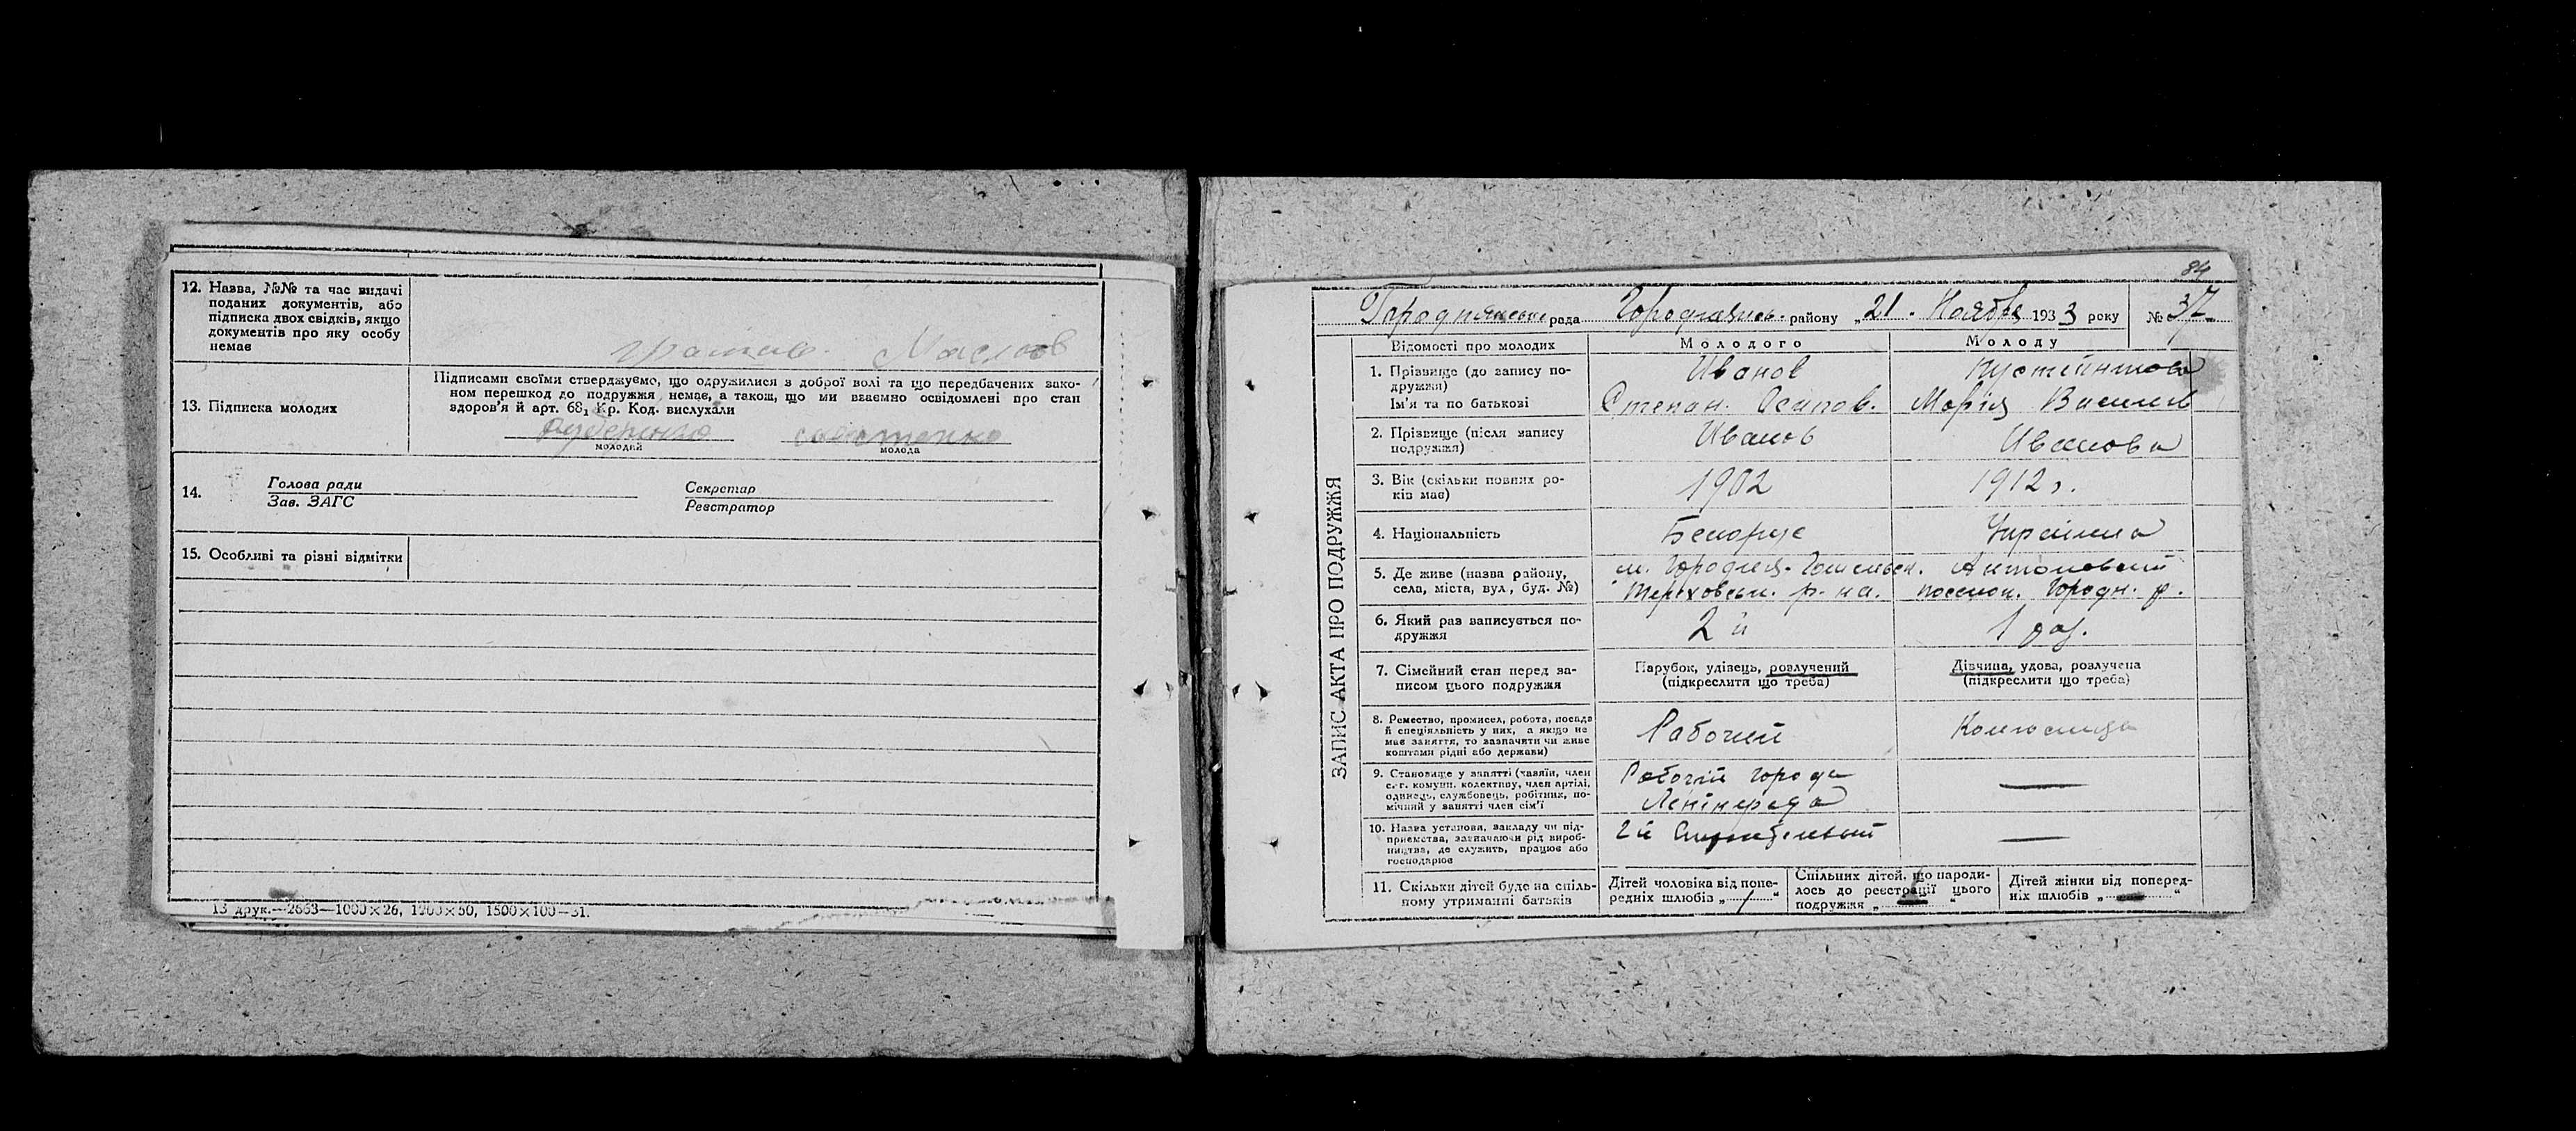 12. Назва, №№ та час видачі
поданих документів, або
підписка двох свідків, якщо
документів про яку особу
немає
13. Підписка молодих
Підписами своїми стверджуємо, що одружилися з доброї волі та що передбачених зако-
ном перешкод до подружжя немає, а також, що ми взаємно освідомлені про стан
здоров'я й арт. 68₁ Кр. Код. вислухали
молодий
молода
14.
Голова ради
Зав. ЗАГС
Секретар
Реєстратор
15. Особливі та різні відмітки
13 друк.—2663—1000×26, 1900×50, 1500×100—31.
84
рада
району „21. Ноября 1933 року
№ 37
ЗАПИС АКТА ПРО ПОДРУЖЖЯ
Відомості про молодих
Молодого
Молоду
1. Прізвище (до запису по-
дружжя)
Ім'я та по батькові
Иванов
Степан. Осипов.
Марія Васильев
2. Прізвище (після запису
подружжя)
Иванов
Иванова
3. Вік (скільки повних ро-
ків має)
1902
1912 г.
4. Національність
Белорус
Украинка
5. Де живе (назва району,
села, міста, вул., буд. №)
Тереховськ. р-на.
Антоновский
поселок. Городн. р.
6. Який раз записується по-
дружжя
2й
1 раз.
7. Сімейний стан перед за-
писом цього подружжя
Парубок, удівець, розлучений
(підкреслити що треба)
Дівчина, удова, розлучена
(підкреслити що треба)
8. Ремество, промисел, робота, посада
й спеціяльність у них, а якщо не
має заняття, то зазначити чи живе
коштами рідні або держави)
Рабочий
9. Становище у занятті (хазяїн, член
с.-г. комуни, колективу, член артілі,
одинець, службовець, робітник, по-
мічний у занятті член сім'ї
Рабочий города
Ленінграда
—
10. Назва установи, закладу чи під-
приємства, зазначаючи рід вироб-
ництва, де служить, працює або
господарює
2й
—
11. Скільки дітей буде на спіль-
ному утриманні батьків
Дітей чоловіка від попе-
редніх шлюбів „1“
Спільних дітей, що народи-
лось до реєстрації цього
подружжя „—“
Дітей жінки від поперед-
ніх шлюбів „—“